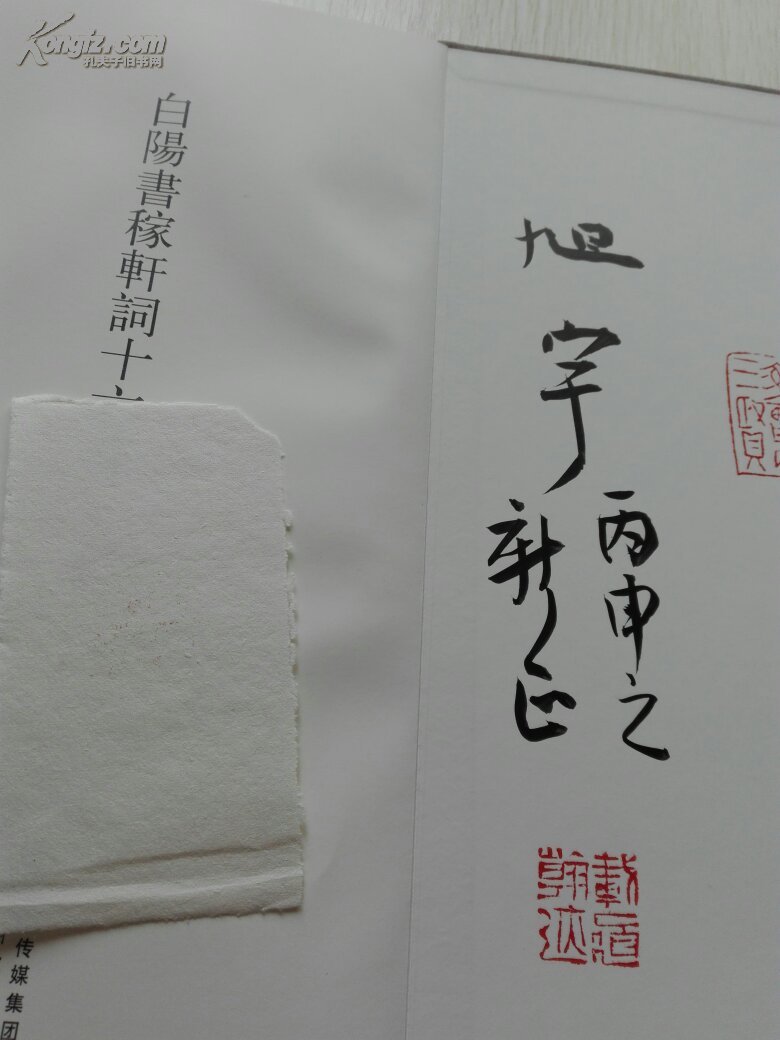 Kongfz.com
孔夫子旧书网
白陽書稼軒詞十六
旭宇
丙申之
新正
传媒集团